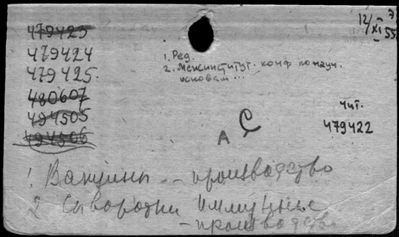 479425
479424
479425
480607
494505
494506
12/XI 55
1. Ред.
2. Межинститут. конф. по науч.
основам ...
А С
Чит.
479422
1 Вакцины -- производство
2 Сыворотки иммунные
- производство